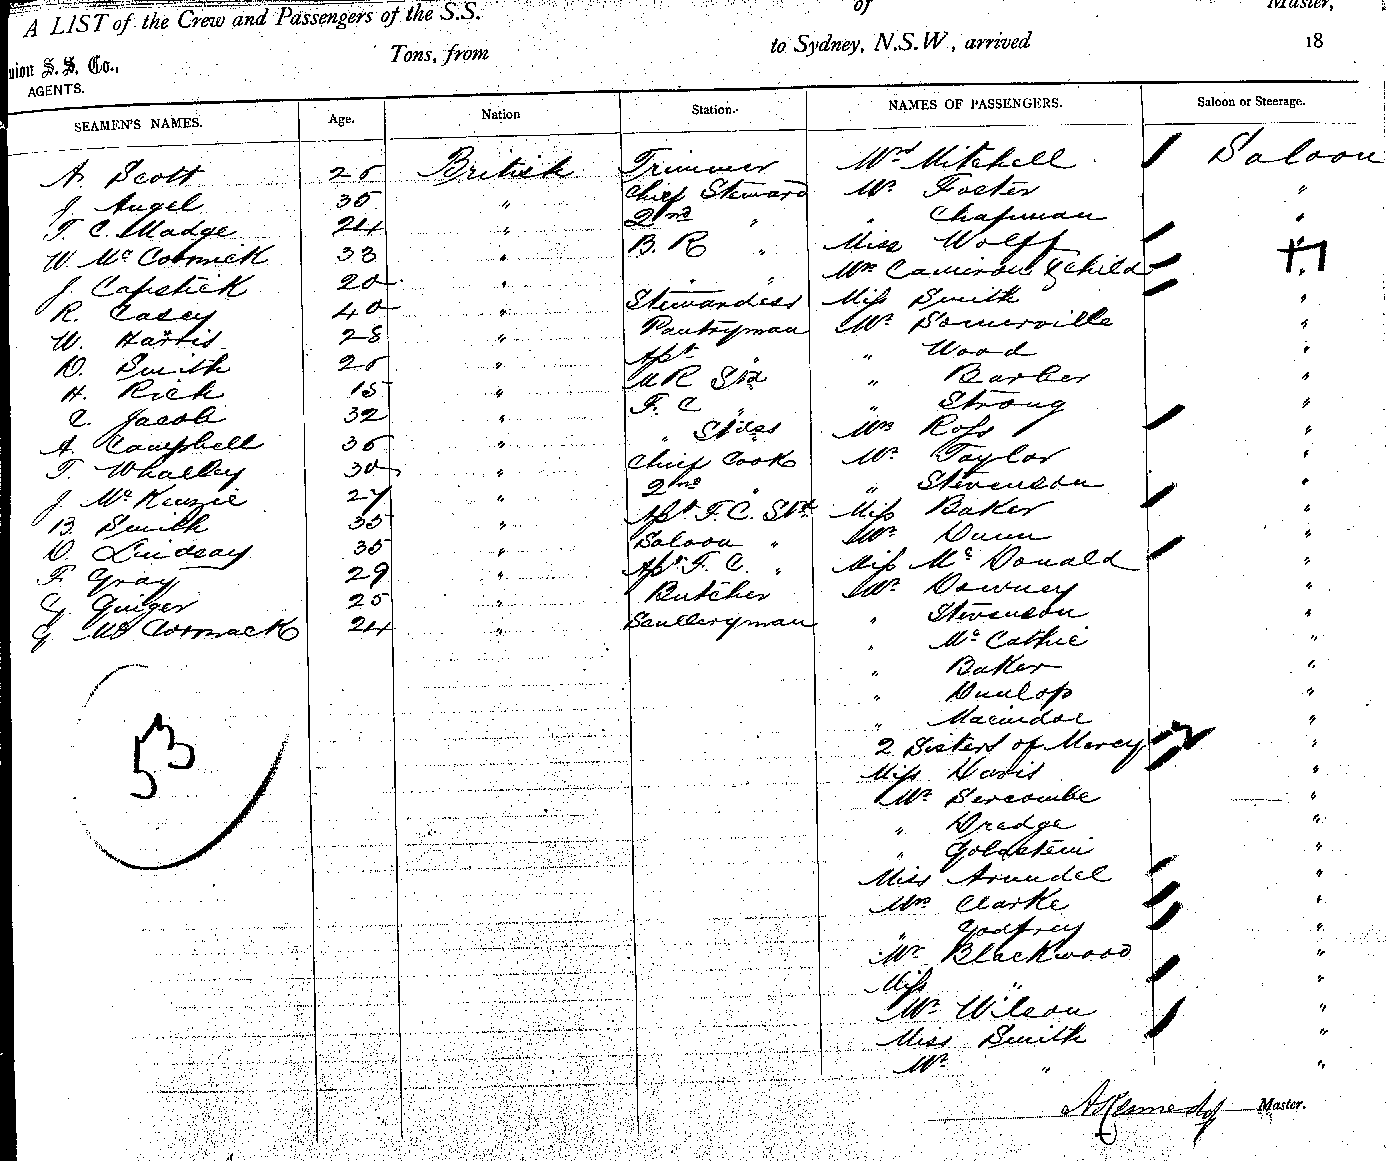 A LIST of the Crew and Passengers of the S.S. of Master,
Tons, from to Sydney, N.S.W., arrived 18
nion S.S. Co.,
AGENTS.
SEAMEN'S NAMES. Age. Nation Station. NAMES OF PASSENGERS. Saloon or Steerage.
A. Scott 25 British Trimmer Mrs Mitchell Saloon
J. Angel 35 " Chief Steward Mr Foster "
T. C. Madge 24 " 2nd " " Chapman "
W. McCormick 33 " B. R " Miss Wolff "
J. Capstick 20 " " " Mrs Cameron & child "
R. Casey 40 " Stewardess Miss Smith "
W. Harris 28 " Pantryman Mr Somerville "
D. Smith 25 " Asst " " Wood "
H. Rick 15 " M R Std " Barber "
C. Jacob 32 " F. C " " Strong "
A. Campbell 36 " " Stdss Mrs Ross "
T. Whalley 30 " Chief Cook Mr Taylor "
J. McKenzie 27 " 2nd " " Stevenson "
B. Smith 35 " Asst F. C. Std Miss Baker "
D. Lindsay 35 " Saloon " Mr Dunn "
F. Gray 29 " Asst F. C. " Miss McDonald "
G. Guiger 25 " Butcher Mr Downey "
G. McCormack 24 " Sculleryman " Stevenson "
" McCathie "
" Baker "
" Dunlop "
53 " Macindoe "
2 Sisters of Mercy 2 "
Miss Davis "
Mr Sercombe "
" Dredge "
" Goldstein "
Miss Arundel "
Mrs Clarke "
" Godfrey "
Mr Blackwood "
Miss " "
Mr Wilson "
Miss Smith "
Mr " "
A Kennedy Master.